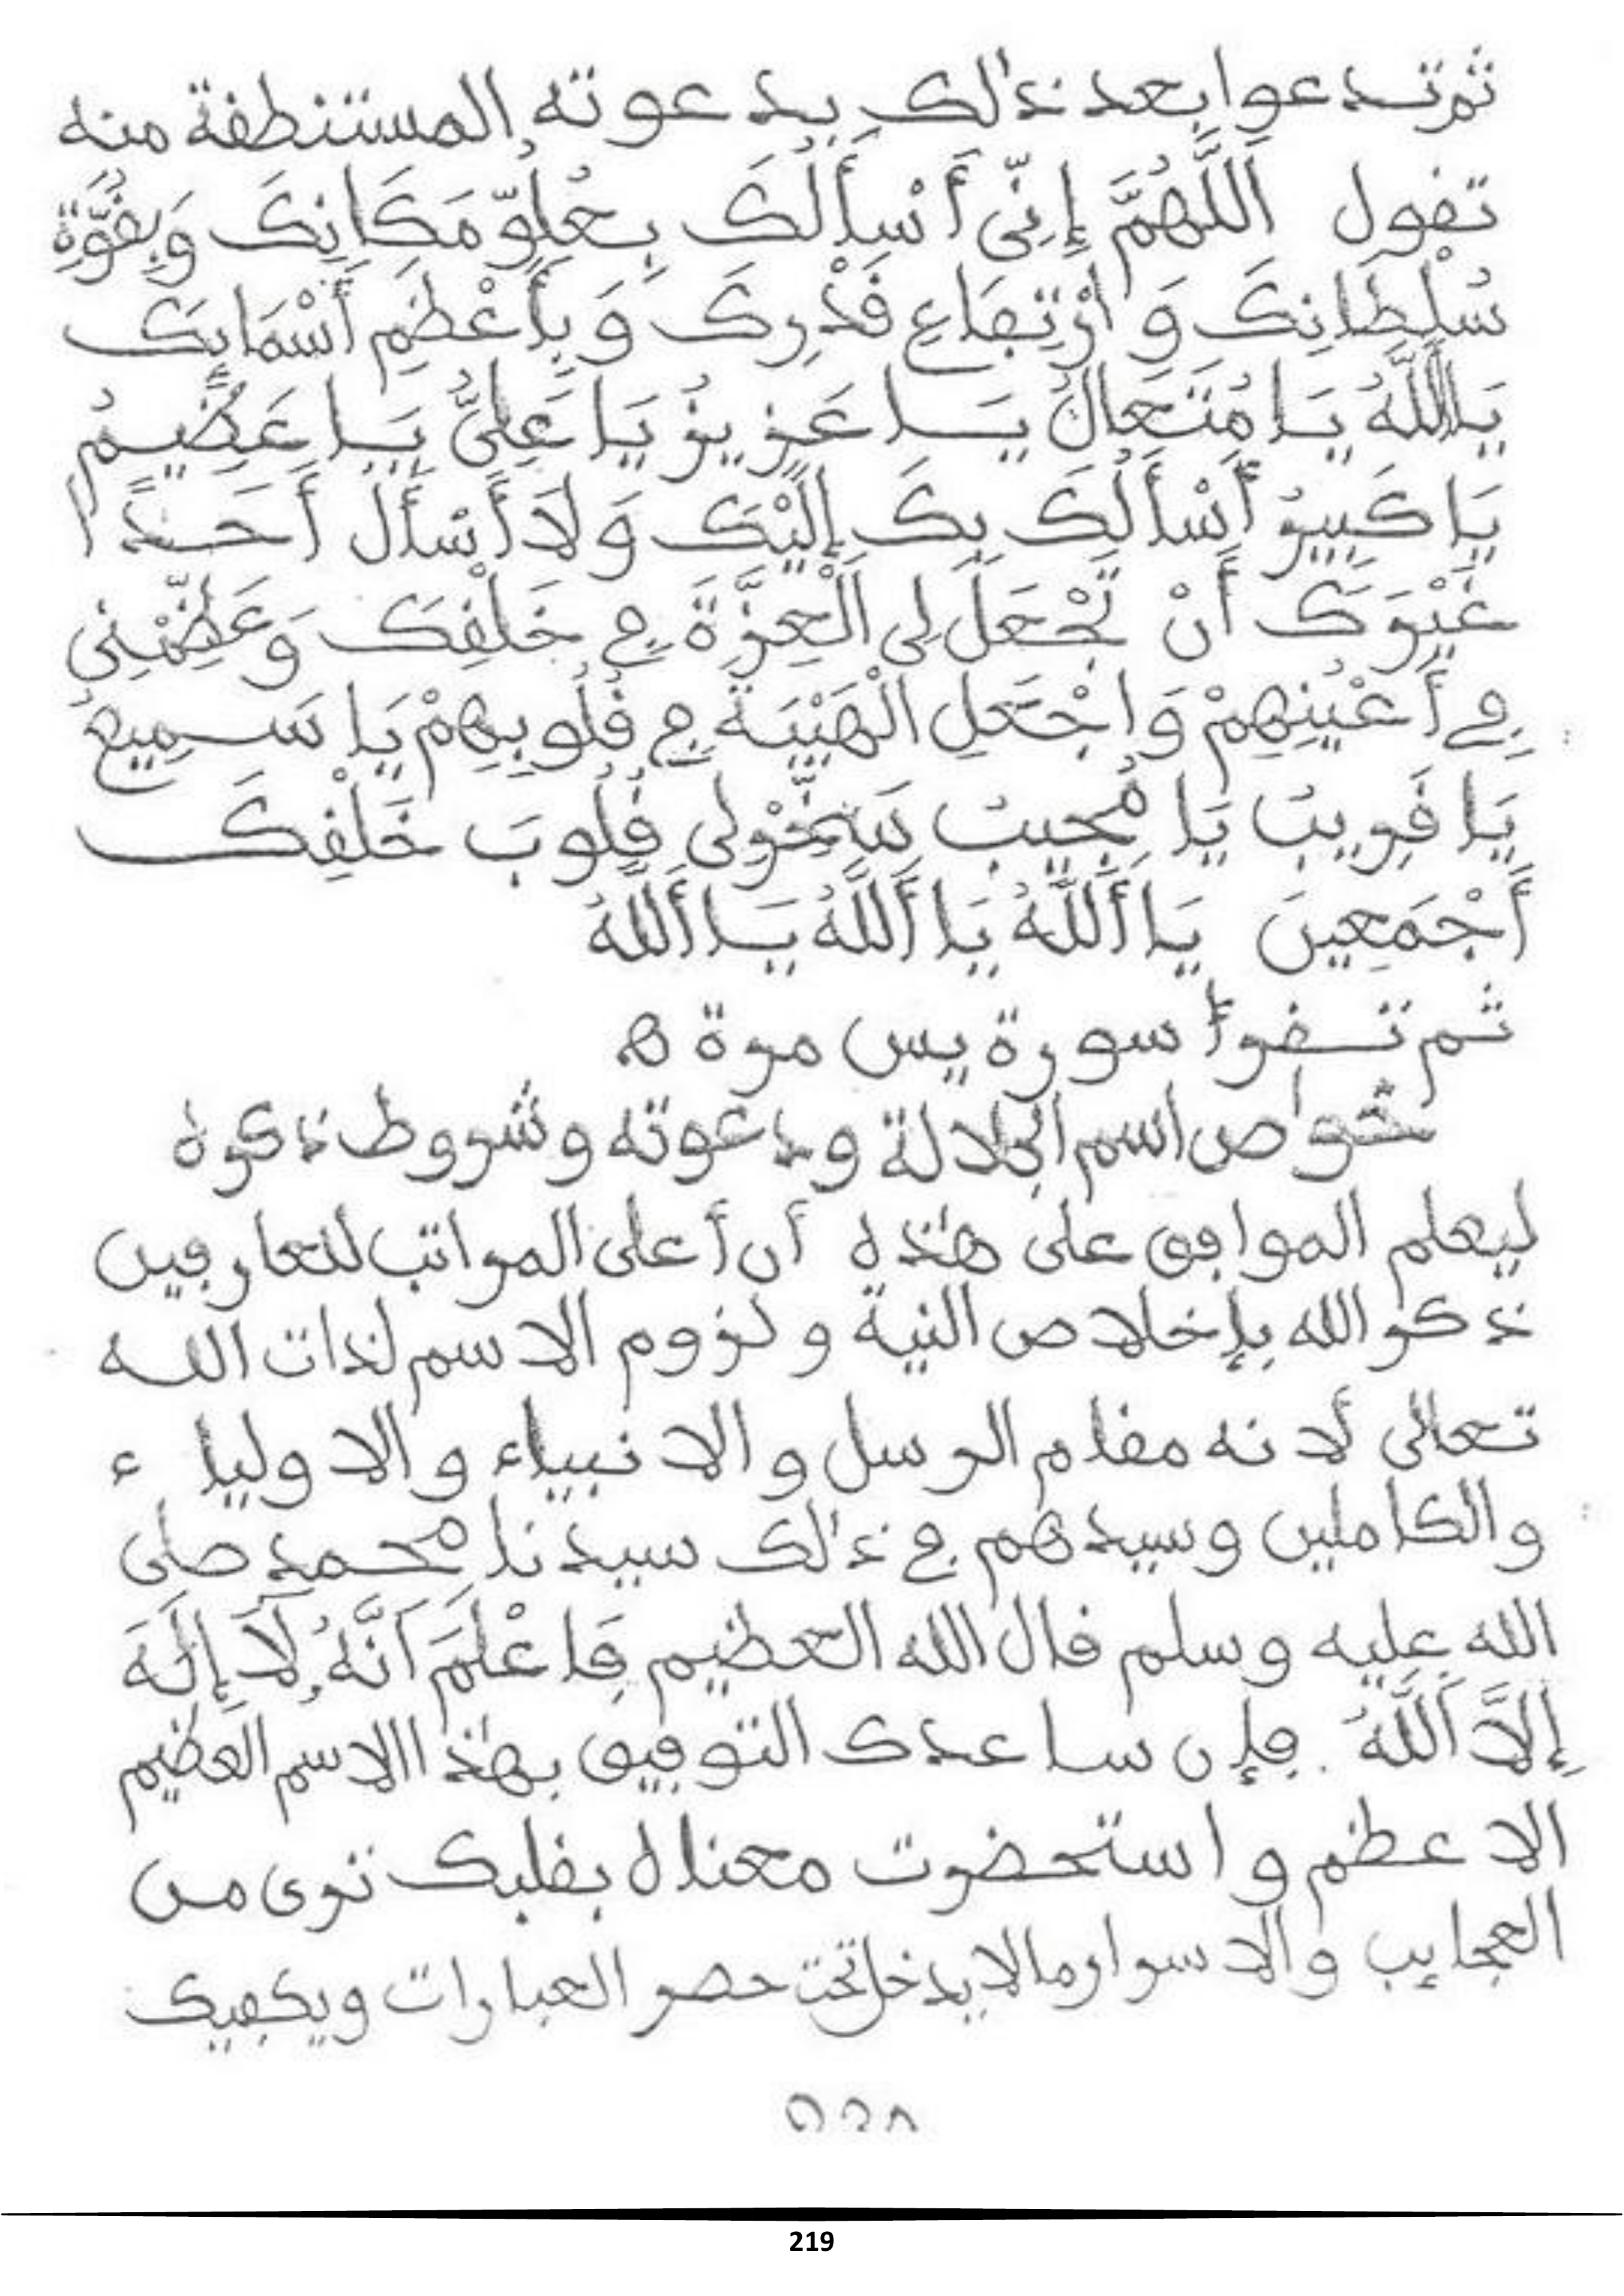 ثم تدعوا بعد ذٰلك بدعوته المستنطقة منه
تقول اَللَّهُمَّ إِنِّى أَسْأَلُكَ بِعُلُوِّ مَكَانِكَ وَبِقُوَّةِ
سُلْطَانِكَ وَارْتِفَاعِ قَدْرِكَ وَبِأَعْظَمِ أَسْمَايِكَ
يَااَللَّهُ يَا مُتَعَالُ يَا عَزِيزُ يَا عَلِىُّ يَا عَظِيمُ
يَا كَبِيرُ أَسْأَلُكَ بِكَ إِلَيْكَ وَلَا أَسْأَلُ أَحَدًا
غَيْرَكَ أَنْ تَجْعَلَ لِى الْعِزَّةَ فِى خَلْقِكَ وَعَظِّمْنِى
فِى أَعْيُنِهِمْ وَاجْعَلِ الْهَيْبَةَ فِى قُلُوبِهِمْ يَا سَمِيعُ
يَا قَرِيبُ يَا مُجِيبُ سَخِّرْلِى قُلُوبَ خَلْقِكَ
أَجْمَعِينَ يَا أَللَّهُ يَا أَللَّهُ يَا أَللَّهُ
ثم تقرأ سورة يس مرة ه
خواص اسم الجلالة ودعوته وشروط ذكره
ليعلم الموافق على هٰذه أن أعلى المراتب للعارفين
ذكر الله بإخلاص النية ولزوم الاسم لذات الله
تعالى لانه مقام الرسل والانبياء والاولياء
والكاملين وسيدهم فى ذٰلك سيدنا محمد صلى
الله عليه وسلم قال الله العظيم فَاعْلَمَ اَنَّهُ لَآ إِلَٰهَ
إِلَّا اَللَّهُ . فإن ساعدك التوفيق بهٰذا الاسم العظيم
الاعظم واستحضرت معناه بقلبك ترى من
العجايب والاسرار مالايدخل تحت حصر العبارات ويكفيك
219